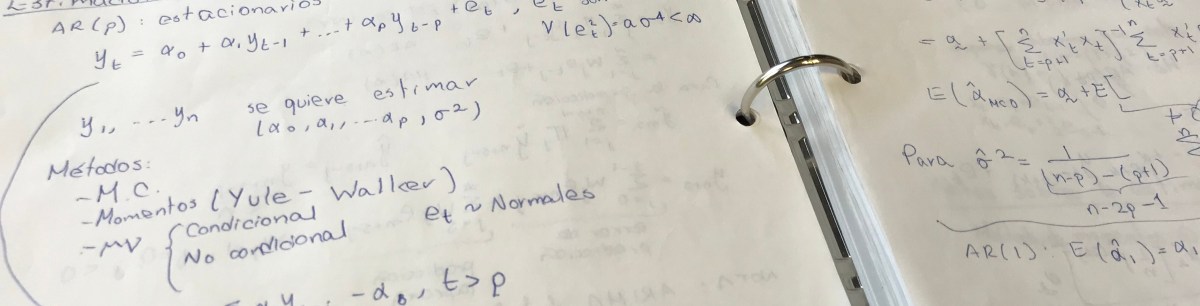 AR(p): estacionarios
y_t = α_0 + α_1 y_{t-1} + ... + α_p y_{t-p} + e_t, e_t
V(e_t^2) = aσ^4 < ∞
y_1, ... y_n se quiere estimar
(α_0, α_1, ... α_p, σ^2)
Métodos:
- M.C.
- Momentos (Yule - Walker)
- MV { Condicional
No condicional
e_t ~ Normales
- α_0, t > p
= α + [ Σ_{t=p+1}^n x'_t x_t ]^{-1} Σ_{t=p+1}^n x'_t
E(α̂_{MCO}) = α + E[
Para σ̂^2 = 1 / ((n-p) - (p+1))
n-2p-1
AR(1): E(α̂_1) = α_1